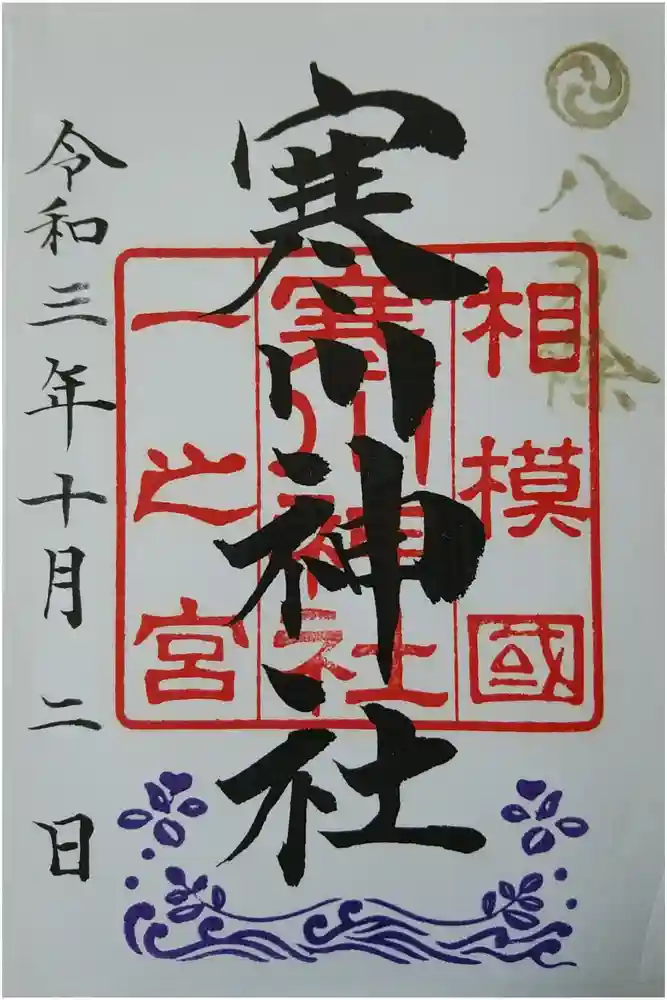 八方除
相模國
寒川神社
一之宮
寒川神社
令和三年十月二日